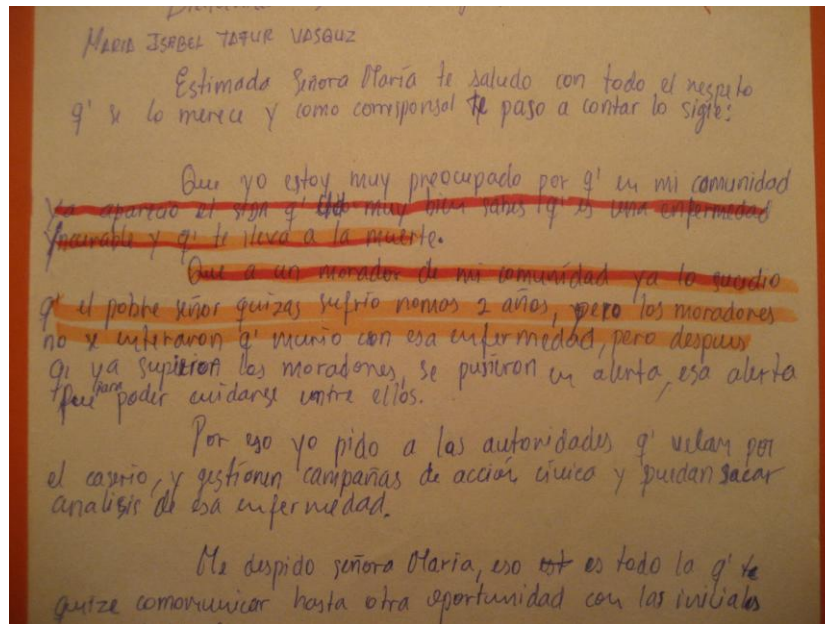 MARIA ISABEL TAFUR VASQUZ
Estimada Señora María te saludo con todo el respeto
q' se lo merece y como corresponsal te paso a contar lo sigte:
Que yo estoy muy preocupado por q' en mi comunidad
ya aparecio el sida q' muy bien sabes q' es una enfermedad
yncurable y q' te lleva a la muerte.
Que a un morador de mi comunidad ya lo sucedio
q' el pobre señor quizas sufrio nomas 2 años, pero los moradores
no se enteraron q' murio con esa enfermedad, pero despues
q' ya supieron los moradores, se pusieron en alerta, esa alerta
fue para poder cuidarse entre ellos.
Por eso yo pido a las autoridades q' velan por
el caserio, y gestionen campañas de acción civica y puedan sacar
analisis de esa enfermedad.
Me despido señora Maria, eso es todo la q' te
quize comounicar hasta otra oportunidad con las iniciales